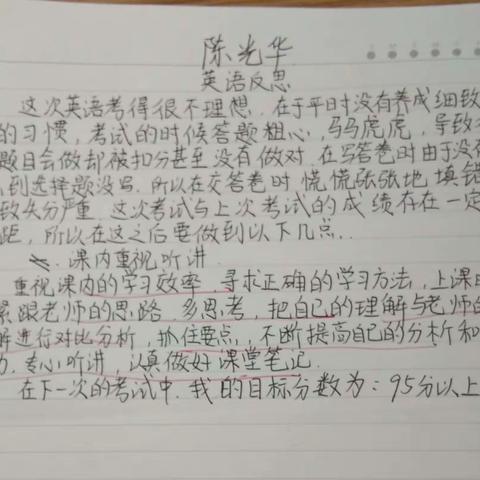 陈光华
英语反思
这次英语考得很不理想.在于平时没有养成细致
的习惯,考试的时候答题粗心,马马虎虎,导致
题目会做却被扣分甚至没有做对.在写答卷时由于没
到选择题没写.所以在交答卷时,慌慌张张地,填错
致失分严重.这次考试与上次考试的成绩存在一定
距,所以在这之后要做到以下几点..
一.课内重视听讲.
重视课内的学习效率.寻求正确的学习方法,上课
紧跟老师的思路.多思考,把自己的理解与老师的
解进行对比分析,抓住要点,不断提高自己的分析和
力.专心听讲,认真做好课堂笔记.
在下一次的考试中.我的目标分数为:95分以上